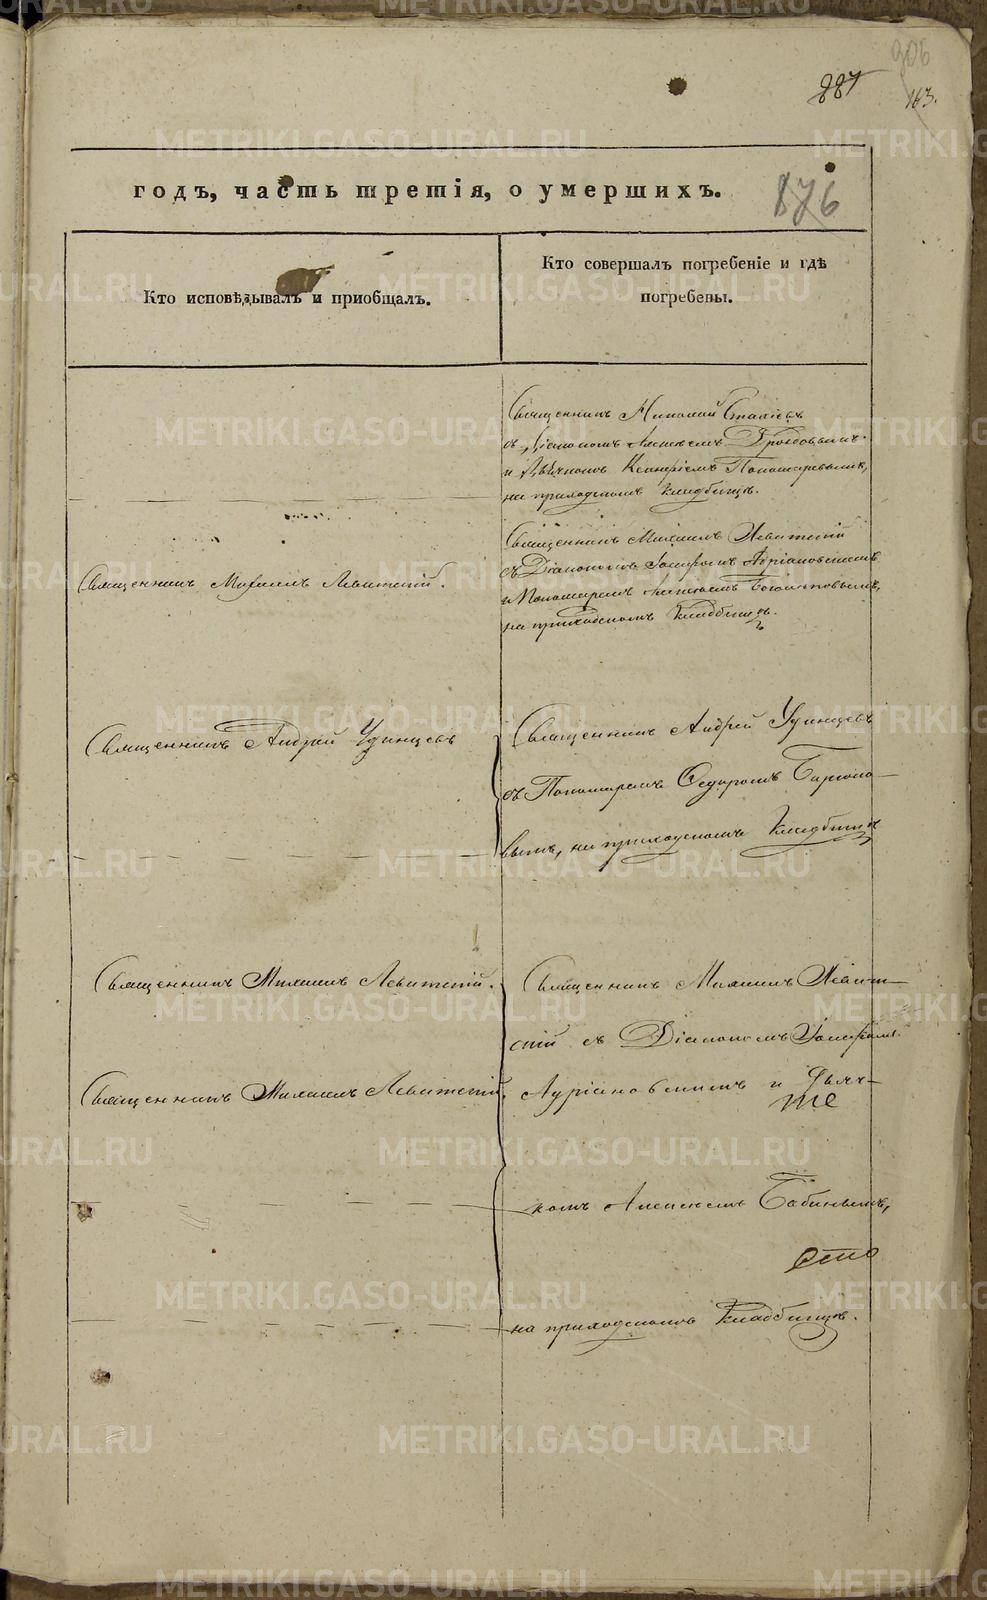 887
306
163.
годъ, часть третія, о умершихъ.
876
Кто исповѣдывалъ и пріобщалъ.
Кто совершалъ погребеніе и гдѣ
погребены.
Священникъ Николай
съ Діакономъ Алексѣемъ Дроздовымъ
и Дьячкомъ Пономаревымъ,
на приходскомъ кладбищѣ.
Священникъ Михаилъ Левитскій.
Священникъ Михаилъ Левитскій
съ Діакономъ Іоасафомъ Адріановскимъ
и Пономаремъ
на приходскомъ Кладбищѣ.
Священникъ Андрей Удинцевъ
Священникъ Андрей Удинцевъ
съ Пономаремъ Ѳедоромъ
вымъ, на приходскомъ Кладбищѣ
Священникъ Михаилъ Левитскій.
Священникъ Михаилъ Левит-
скій съ Діакономъ Іоасафомъ
Священникъ Михаилъ Левитскій.
Адріановскимъ и Дьяч-
комъ Алексѣемъ Бабинымъ,
на приходскомъ Кладбищѣ.
METRIKI.GASO-URAL.RU